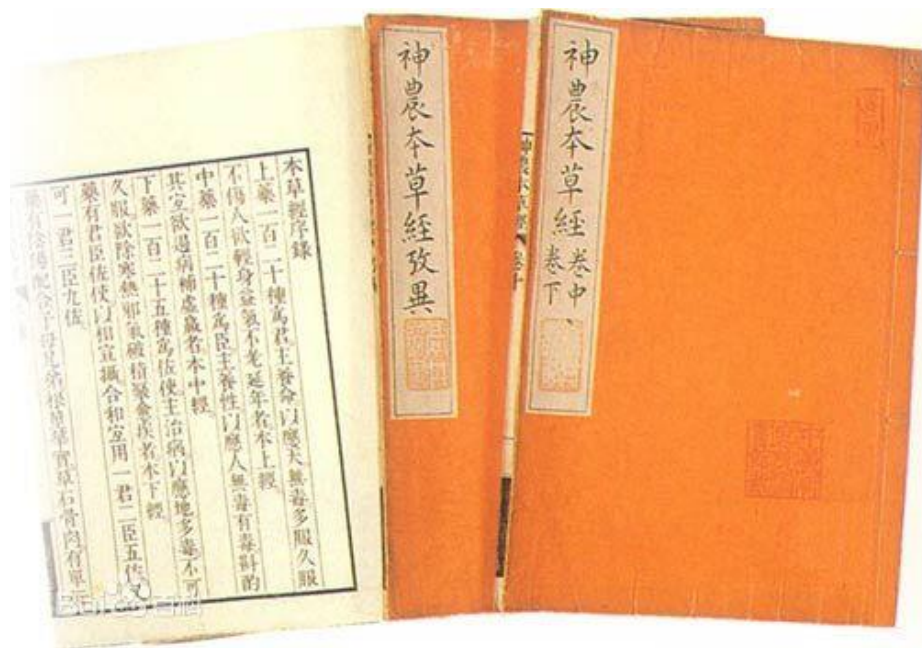 神農本草經 卷中、
卷下
神農本草經攷異
本草經序錄
上藥一百二十種為君主養命以應天無毒多服久服
不傷人欲輕身益氣不老延年者本上經
中藥一百二十種為臣主養性以應人無毒有毒斟酌
其宜欲遏病補虛羸者本中經
下藥一百二十五種為佐使主治病以應地多毒不可
久服欲除寒熱邪氣破積聚愈疾者本下經
藥有君臣佐使以相宣攝合和宜用一君二臣五佐又
可一君三臣九佐
藥有陰陽配合子母兄弟根莖華實草石骨肉有單
Baidu百科